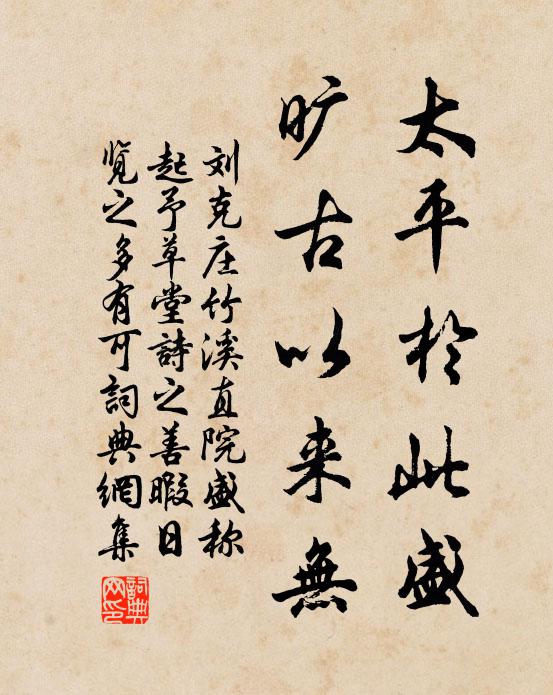 太平於此盛
旷古以来無
刘克庄竹溪直院盛称
起予草堂詩之善暇日
览之多有可詞典網集
詞典網印